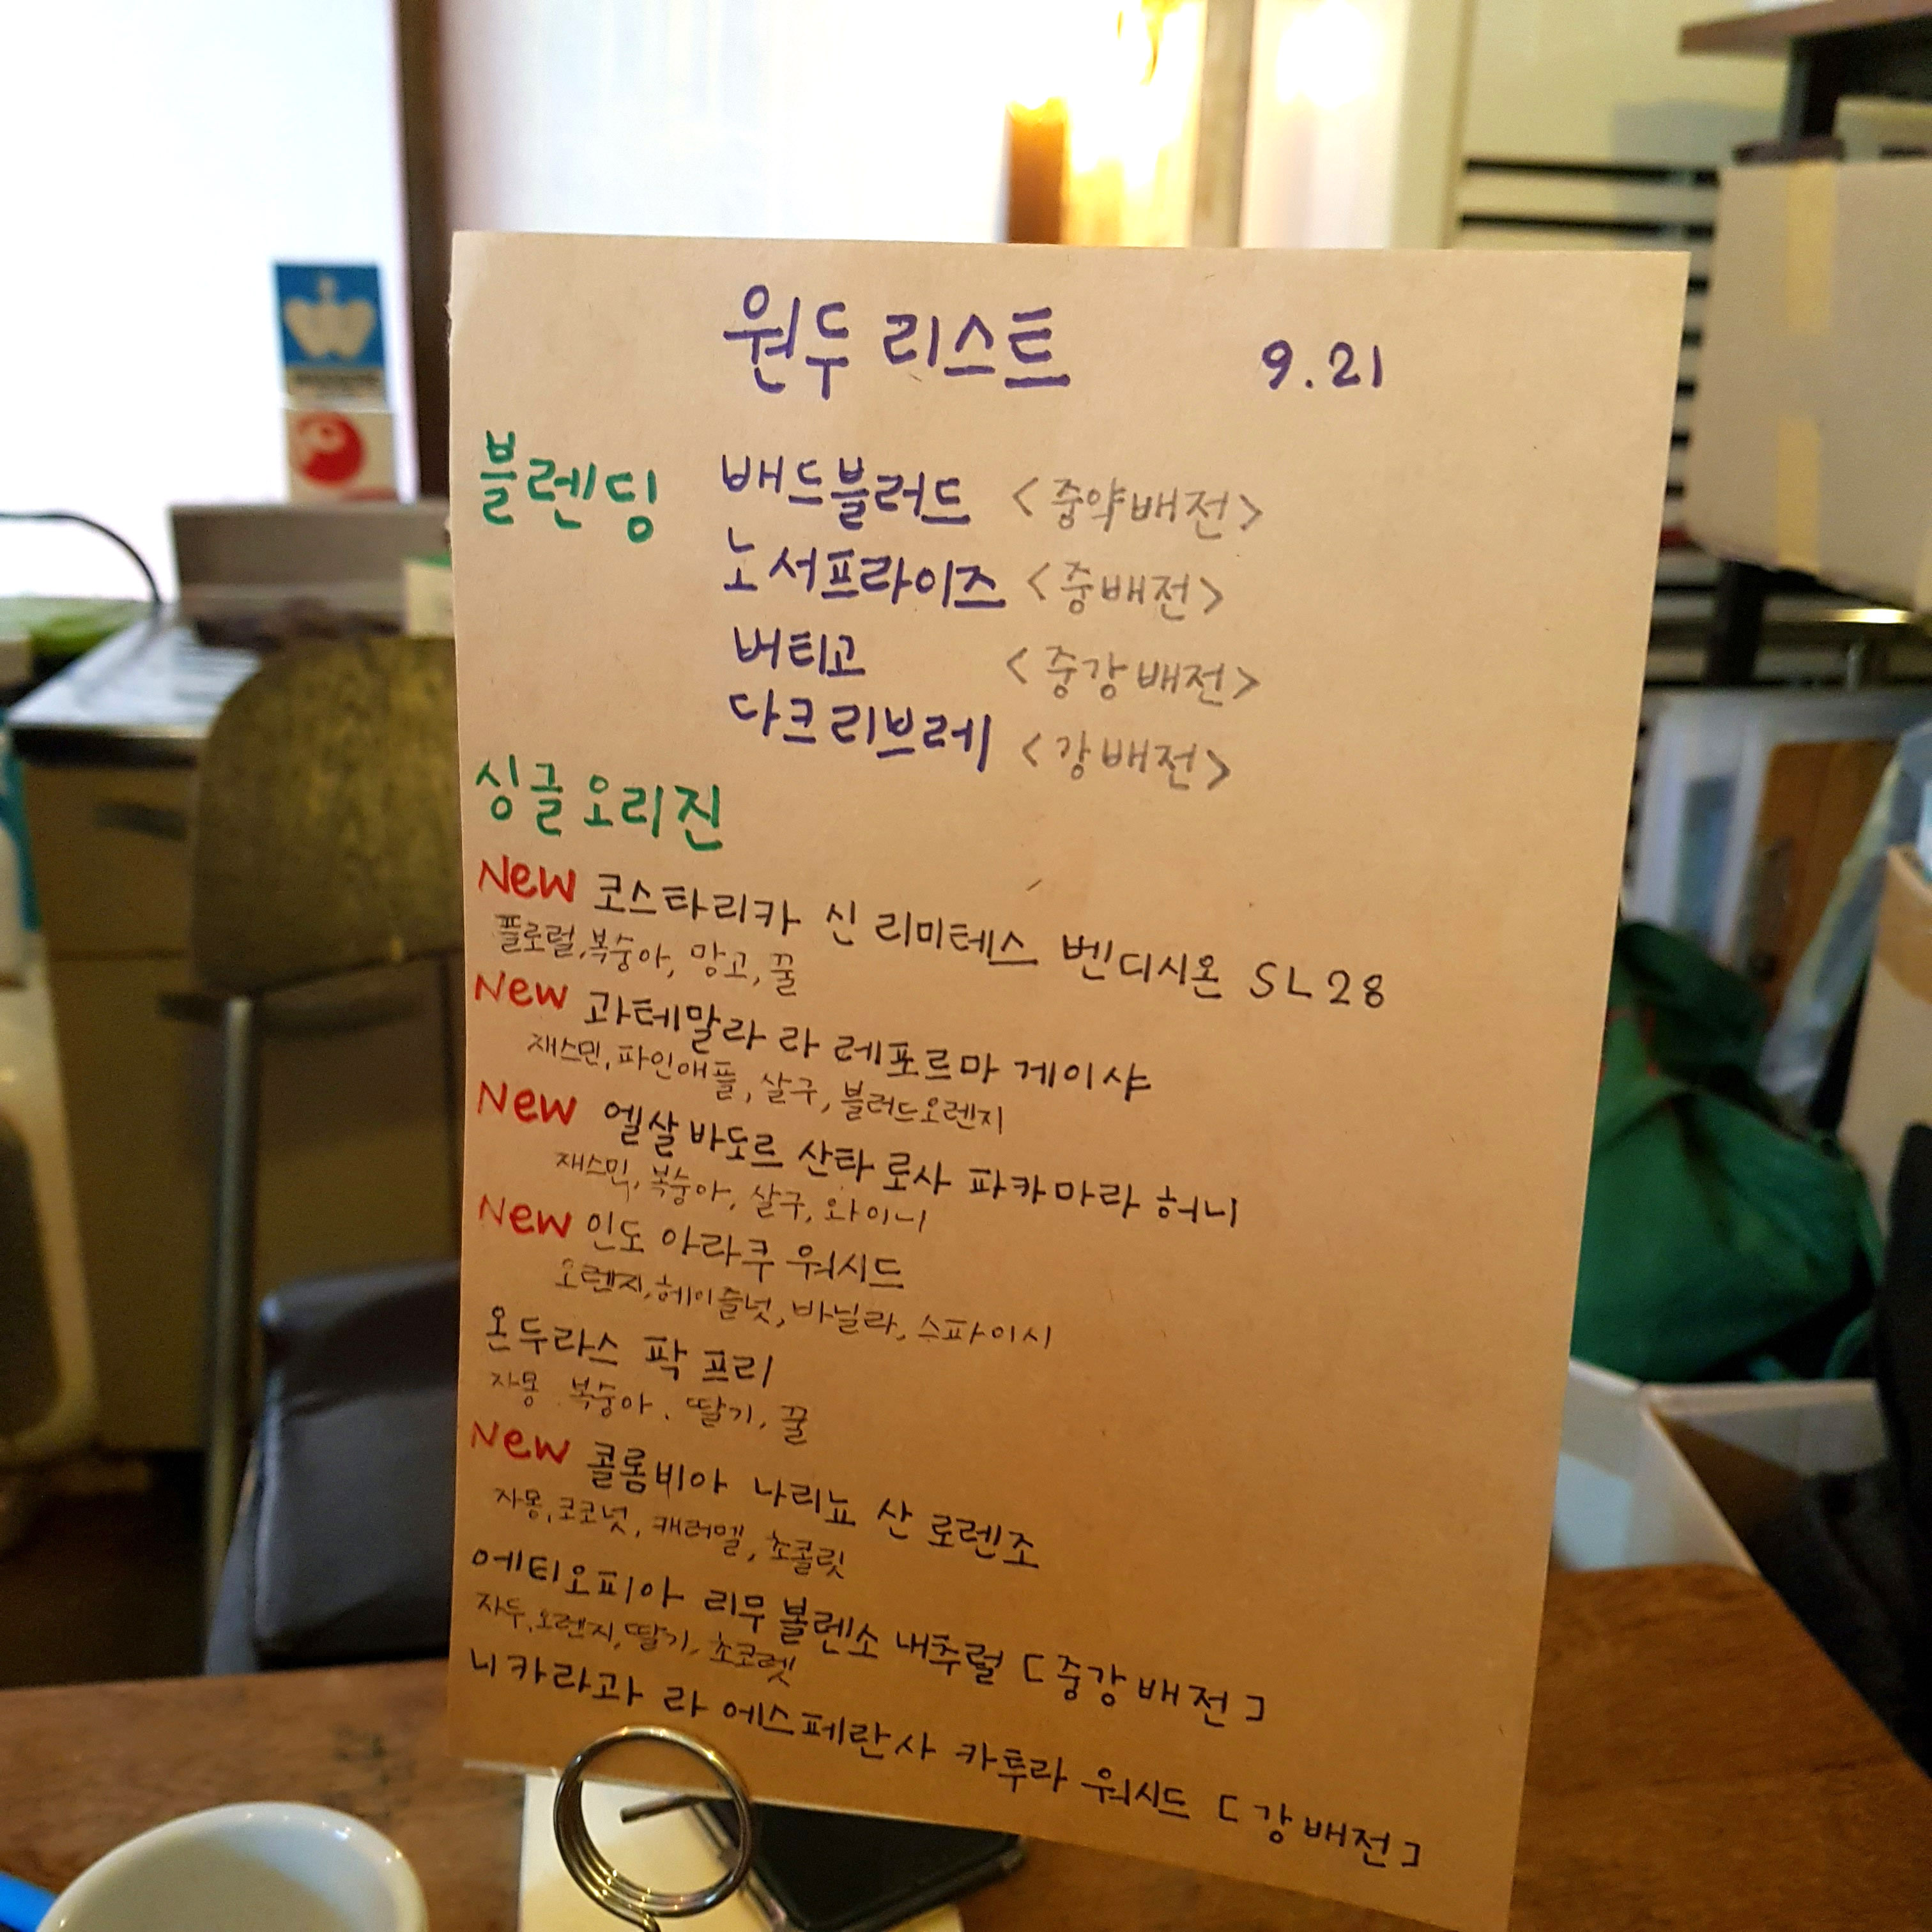 원두 리스트 9.21
블렌딩 배드블러드 <중약배전>
노서프라이즈 <중배전>
버티고 <중강배전>
다크리브레 <강배전>
싱글오리진
New 코스타리카 신 리미테스 벤디시온 SL28
플로럴, 복숭아, 망고, 꿀
New 과테말라 라 레포르마 게이샤
재스민, 파인애플, 살구, 블러드오렌지
New 엘살바도르 산타 로사 파카마라 허니
재스민, 복숭아, 살구, 와이니
New 인도 아라쿠 워시드
오렌지, 헤이즐넛, 바닐라, 스파이시
온두라스 팍 프리
자몽. 복숭아. 딸기, 꿀
New 콜롬비아 나리뇨 산 로렌조
자몽, 코코넛, 캐러멜, 초콜릿
에티오피아 리무 볼렌소 내추럴 [중강배전]
자두, 오렌지, 딸기, 초코렛
니카라과 라 에스페란사 카투라 워시드 [강배전]